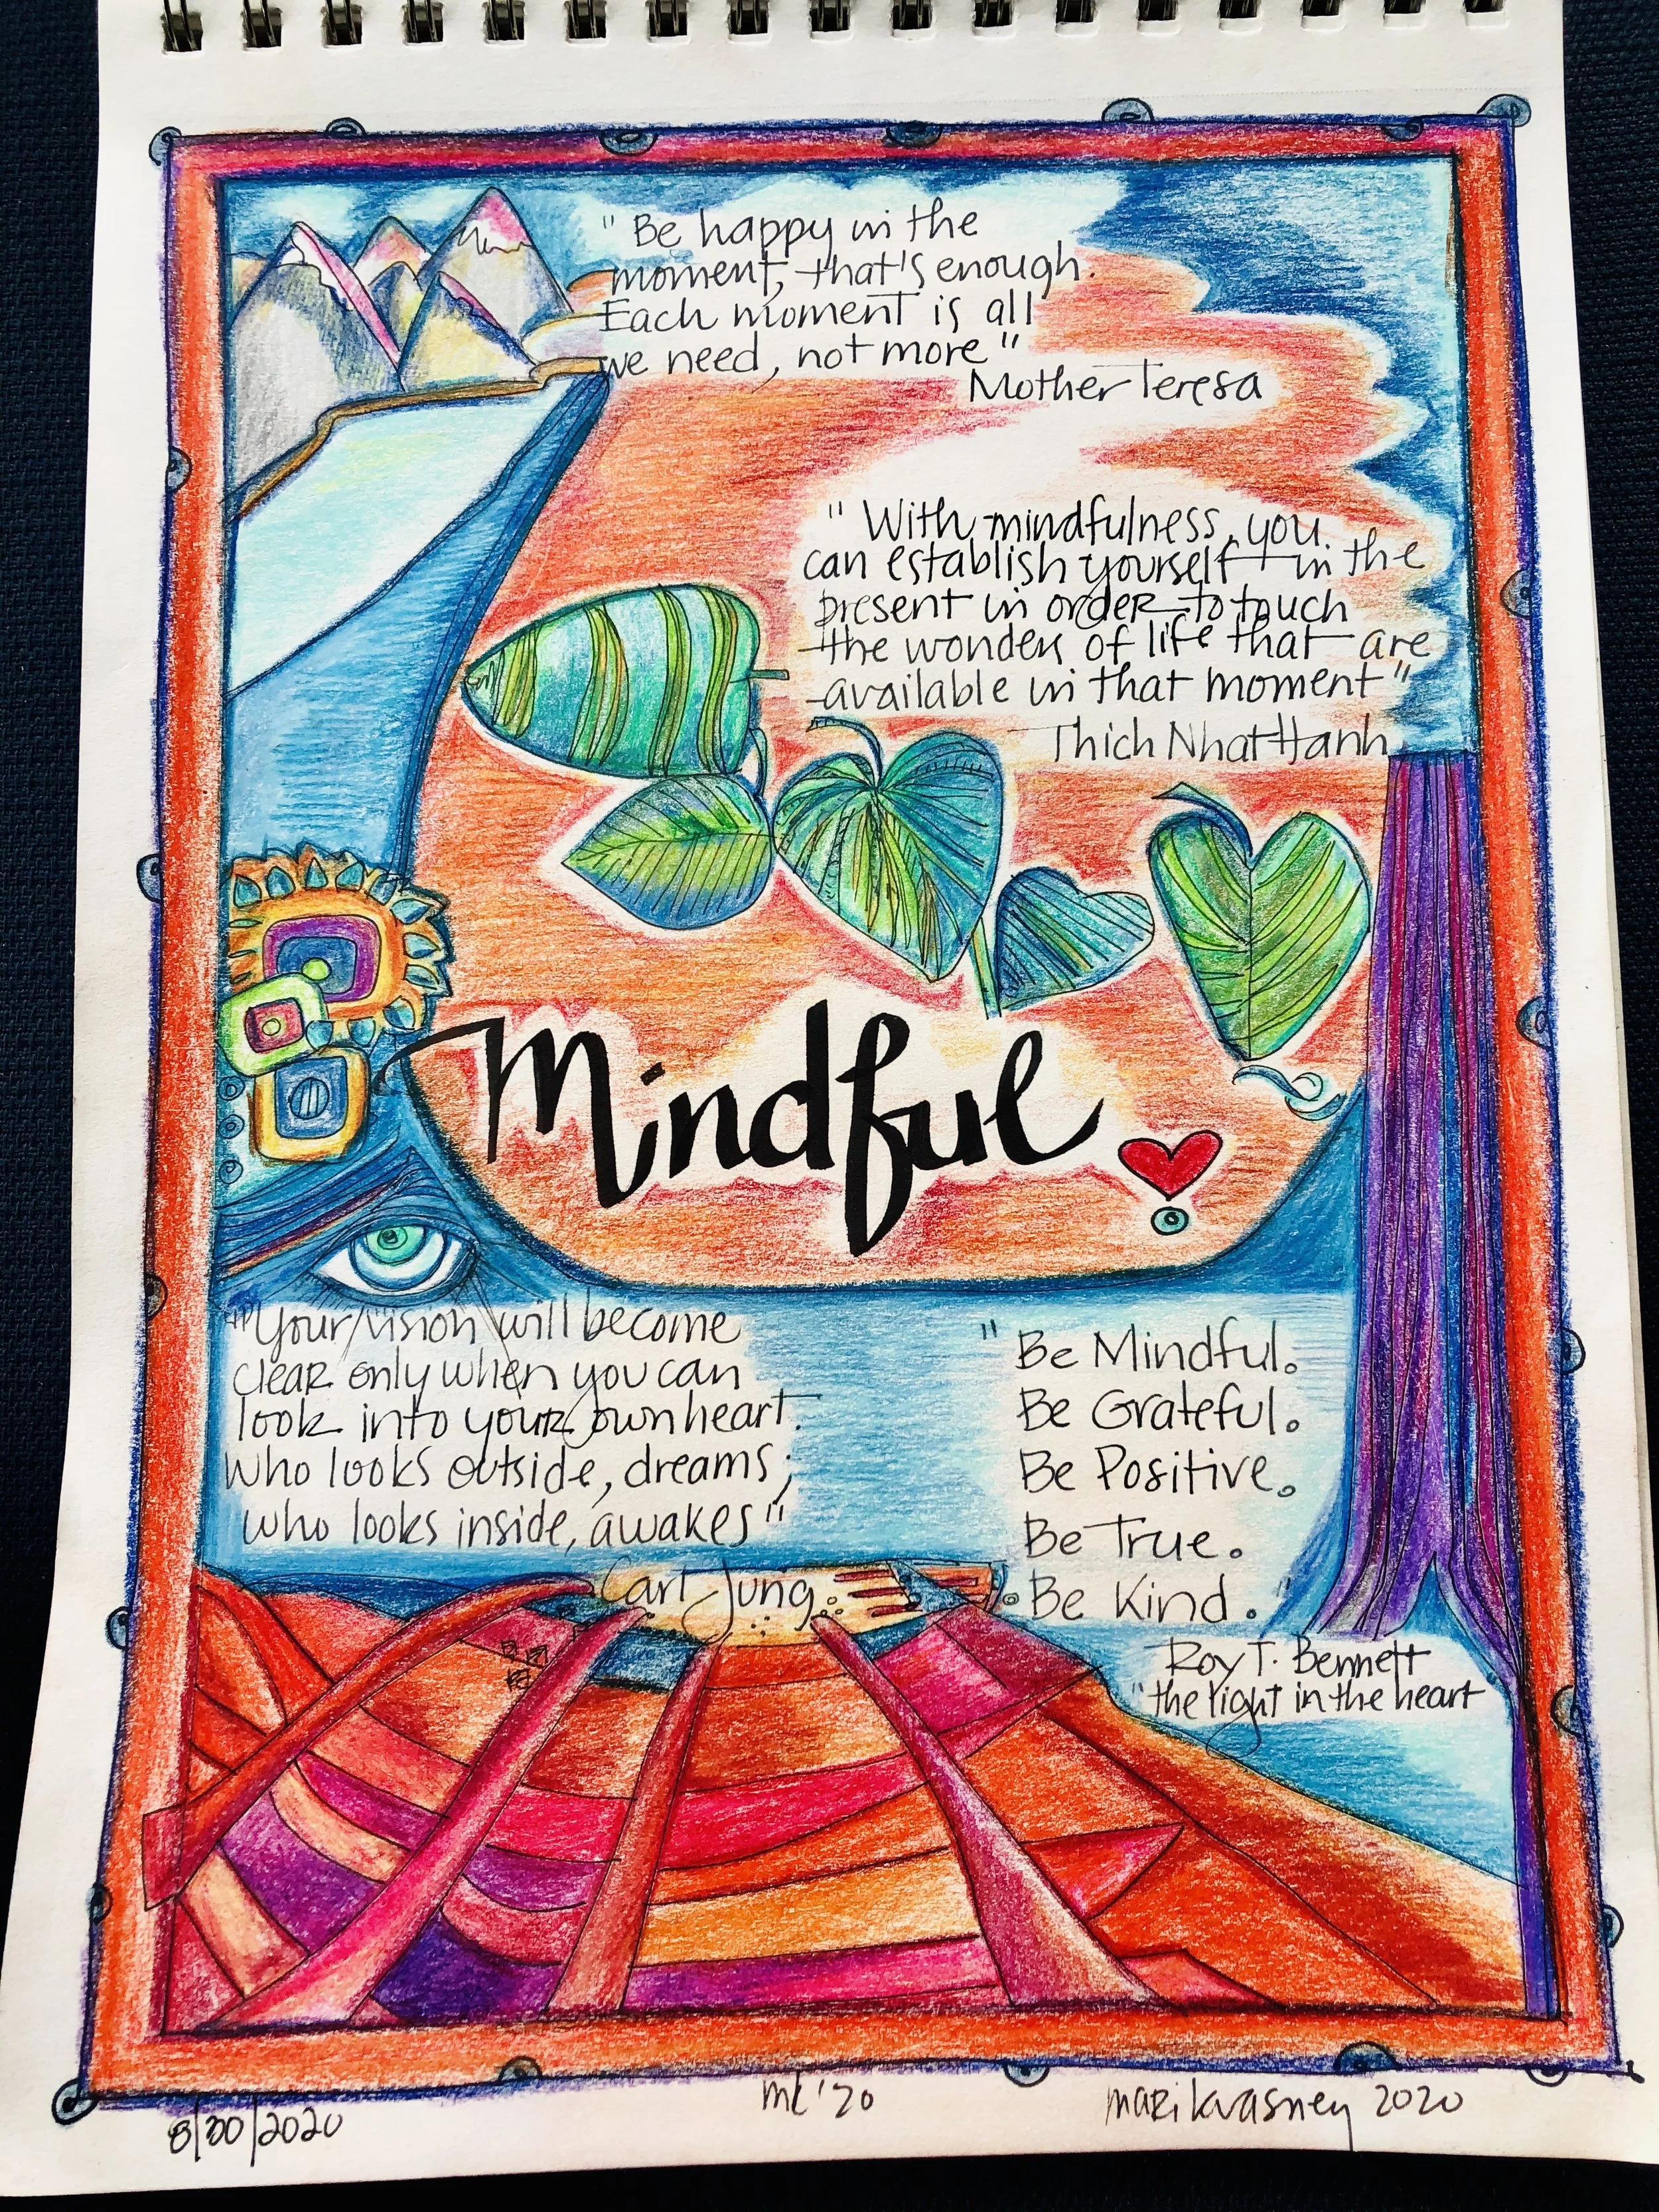 "Be happy in the
moment, that's enough.
Each moment is all
we need, not more"
Mother Teresa
"With mindfulness, you
can establish yourself in the
present in order to touch
the wonders of life that are
available in that moment"
Thich Nhat Hanh
Mindful
"Your vision will become
clear only when you can
look into your own heart.
Who looks outside, dreams;
who looks inside, awakes"
Carl Jung
"Be Mindful.
Be Grateful.
Be Positive.
Be True.
Be Kind."
Roy T. Bennett
"the light in the heart
8/30/2020
mk '20
mari kvasney 2020